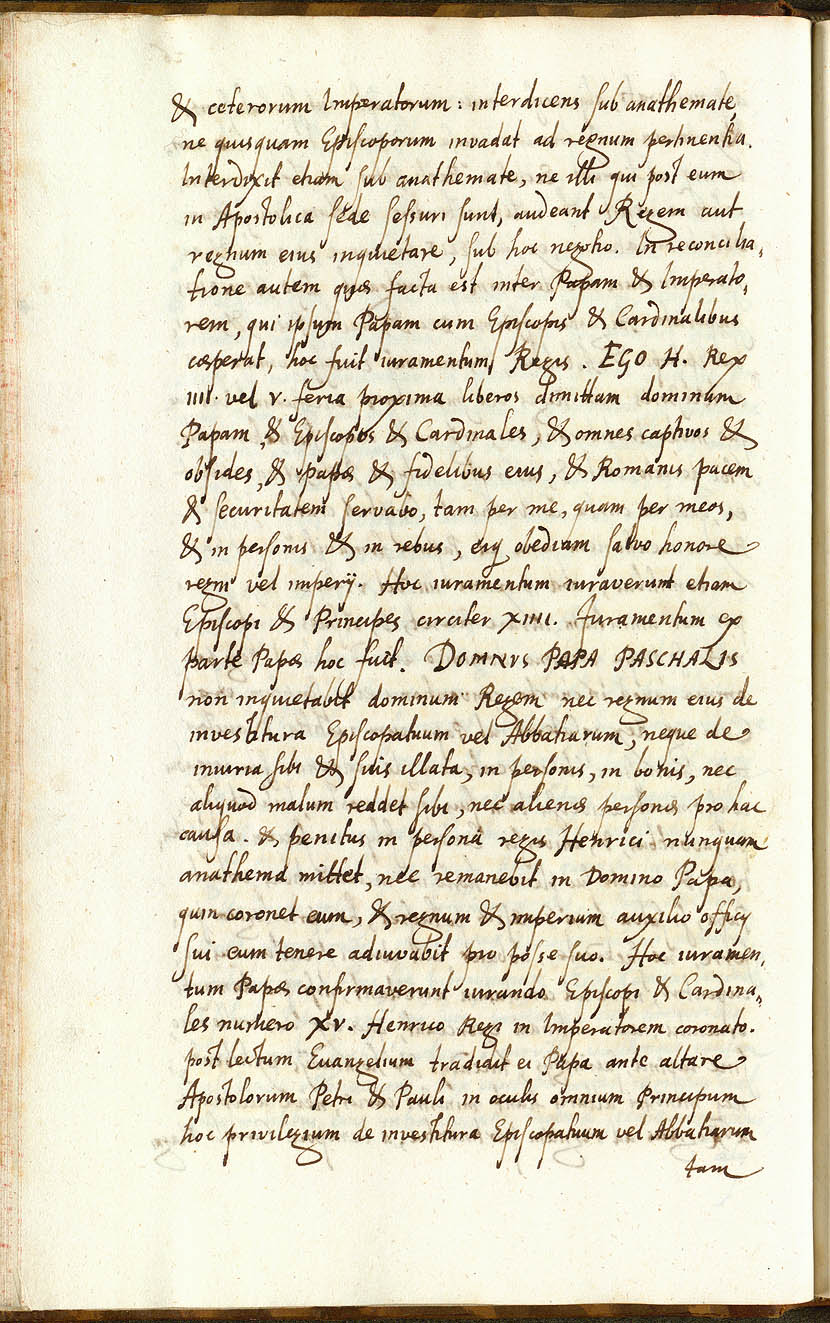 & ceterorum Imperatorum: interdicens sub anathemate,
ne quisquam Episcoporum invadat ad regnum pertinentia.
Interdixit etiam sub anathemate, ne illi qui post eum
in Apostolica sede sessuri sunt, audeant Regem aut
regnum eius inquietare, sub hoc negotio. In reconcilia,,
tione autem quæ facta est inter Papam & Imperato,,
rem, qui ipsum Papam cum Episcopis & Cardinalibus
cæperat, hoc fuit iuramentum Regis. EGO H. Rex
IIII. vel V. feria proxima liberos dimittam dominum
Papam & Episcopos & Cardinales, & omnes captivos &
obsides, & papæ & fidelibus eius, & Romanis pacem
& securitatem servabo, tam per me, quam per meos,
& in personis & in rebus, eiq obediam salvo honore
regni vel imperij. Hoc iuramentum iuraverunt etiam
Episcopi & Principes circiter XIIII. Juramentum ex
parte Papæ hoc fuit. DOMNVS PAPA PASCHALIS
non inquietabit dominum Regem nec regnum eius de
investitura Episcopatuum vel Abbatiarum, neque de
iniuria sibi & suis illata, in personis, in bonis, nec
aliquod malum reddet sibi, nec alienæ personæ pro hac
causa. & penitus in persona regis Henrici nunquam
anathema mittet, nec remanebit in Domino Papa,
quin coronet eum, & regnum & imperium auxilio officij
sui eum tenere adiuvabit pro posse suo. Hoc iuramen,,
tum Papæ confirmaverunt iurando Episcopi & Cardina,,
les numero XV. Henrico Regi in Imperatorem coronato.
post lectum Euangelium tradidit ei Papa ante altare
Apostolorum Petri & Pauli in oculis omnium Principum
hoc privilegium de investitura Episcopatuum vel Abbatiarum
tam